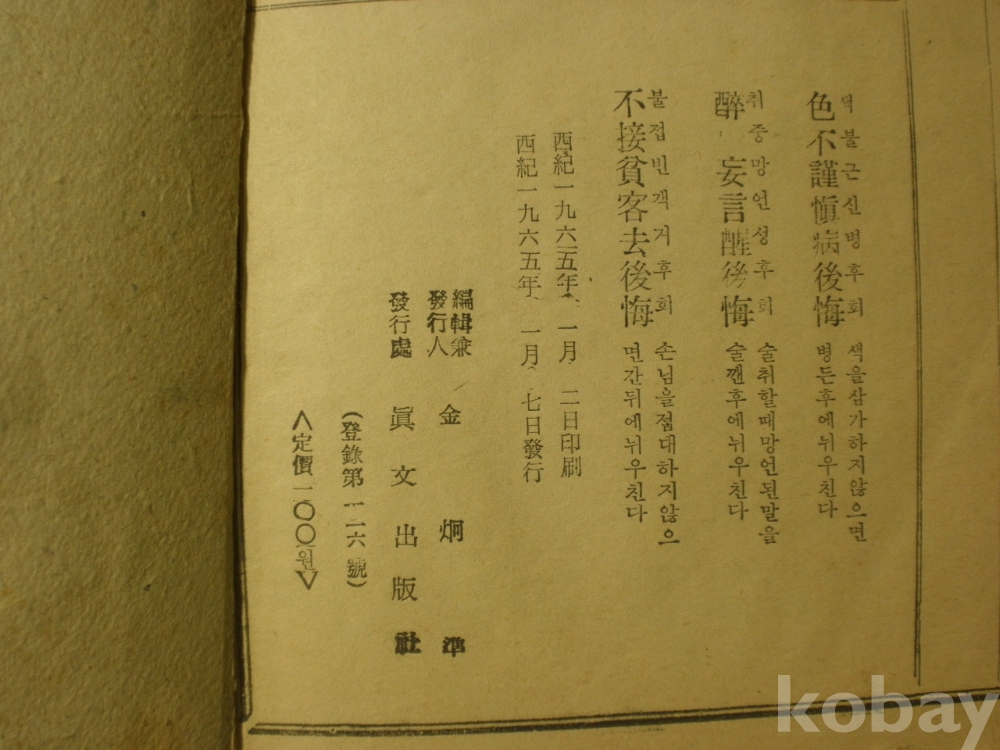 색불근신병후회
色不謹愼病後悔
색을삼가하지않으면
병든후에뉘우친다
취중망언성후회
醉中妄言醒後悔
술취할때망언된말을
술깬후에뉘우친다
불접빈객거후회
不接貧客去後悔
손님을접대하지않으
면간뒤에뉘우친다
西紀一九六五年 一月 二日印刷
西紀一九六五年 一月 七日發行
編輯兼
發行人 金 炯 準
發行處 眞文出版社
(登錄第一二六號)
<定價一〇〇원>
kobay